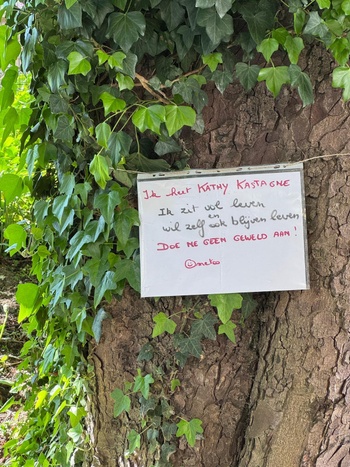 Ik heet KATHY KASTAGNE
Ik zit vol leven
en
wil zelf ook blijven leven
DOE ME GEEN GEWELD AAN!